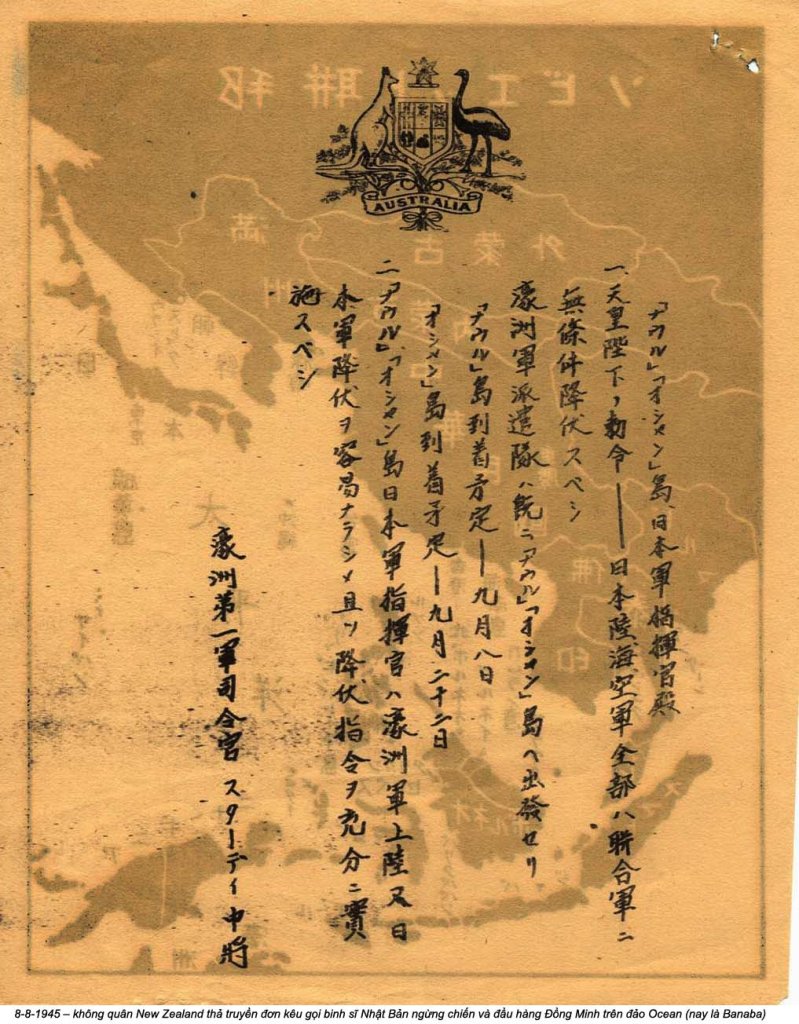 AUSTRALIA
「ナウル」「オシャン」島日本軍指揮官殿
一、天皇陛下ノ勅令――日本陸海空軍全部ハ聯合軍ニ
無條件降伏スベシ
濠洲軍派遣隊ハ既ニ「ナウル」「オシャン」島ヘ出發セリ
「ナウル」島到着予定―九月八日
「オシャン」島到着予定―九月二十二日
二、「ナウル」「オシャン」島日本軍指揮官ハ濠洲軍上陸又日
本軍降伏ヲ容易ナラシメ且ツ降伏指令ヲ充分ニ實
施スベシ
濠洲第一軍司令官 スターディ中將
ソビエ 聯邦
外蒙古
満
佛印
大
洋
8-8-1945 – không quân New Zealand thả truyền đơn kêu gọi binh sĩ Nhật Bản ngừng chiến và đầu hàng Đồng Minh trên đảo Ocean (nay là Banaba)